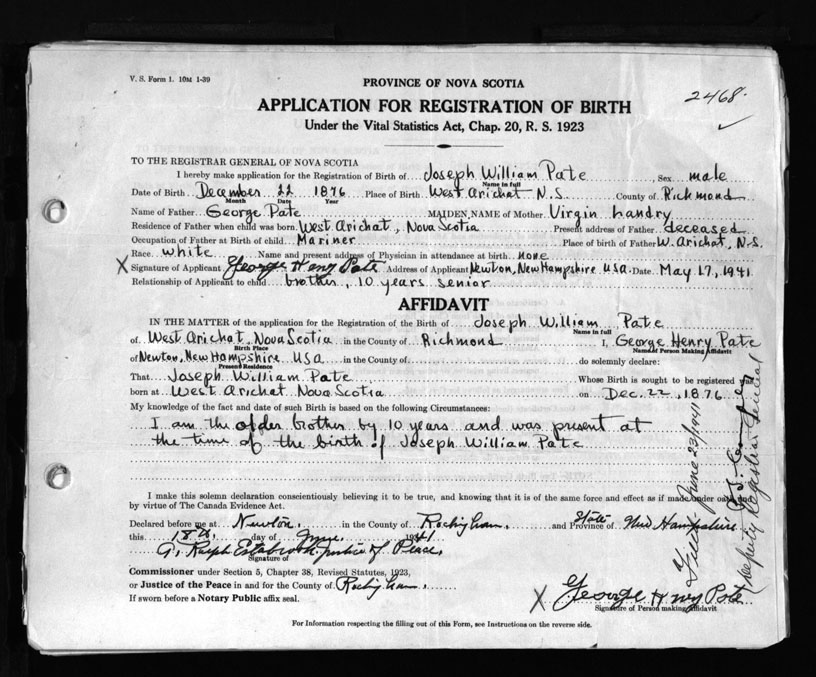 V. S. Form 1. 10M 1-39
PROVINCE OF NOVA SCOTIA
2468.
APPLICATION FOR REGISTRATION OF BIRTH
Under the Vital Statistics Act, Chap. 20, R. S. 1923
TO THE REGISTRAR GENERAL OF NOVA SCOTIA
I hereby make application for the Registration of Birth of Joseph William Pate Sex male
Name in full
Date of Birth December 22 1876 Place of Birth West Arichat N.S. County of Richmond
Month Date Year
Name of Father George Pate MAIDEN NAME of Mother Virgin Landry
Residence of Father when child was born West Arichat, Nova Scotia Present address of Father deceased
Occupation of Father at Birth of child Mariner Place of birth of Father W. Arichat, N.S.
Race white Name and present address of Physician in attendance at birth none
X Signature of Applicant George Henry Pate Address of Applicant Newton, New Hampshire USA Date May 17, 1941
Relationship of Applicant to child brother, 10 years senior
AFFIDAVIT
IN THE MATTER of the application for the Registration of the Birth of Joseph William Pate
Name in full
of West Arichat, Nova Scotia in the County of Richmond I, George Henry Pate
Birth Place Name of Person Making Affidavit
of Newton, New Hampshire USA in the County of do solemnly declare:
Present Residence
That Joseph William Pate Whose Birth is sought to be registered was
born at West Arichat Nova Scotia on Dec. 22, 1876
My knowledge of the fact and date of such Birth is based on the following Circumstances:
I am the older brother by 10 years and was present at
the time of the birth of Joseph William Pate
I make this solemn declaration conscientiously believing it to be true, and knowing that it is of the same force and effect as if made under oath
by virtue of The Canada Evidence Act.
Declared before me at Newton. in the County of Rockingham. and Province of State New Hampshire
this 18th. day of June. 1941
A. Ralph Estabrook Justice of Peace.
Signature of
Commissioner under Section 5, Chapter 38, Revised Statutes, 1923,
or Justice of the Peace in and for the County of Rockingham.
If sworn before a Notary Public affix seal.
X George Henry Pate
Signature of Person making Affidavit
For Information respecting the filling out of this Form, see Instructions on the reverse side.
Filed June 23/1941
Deputy Registrar General